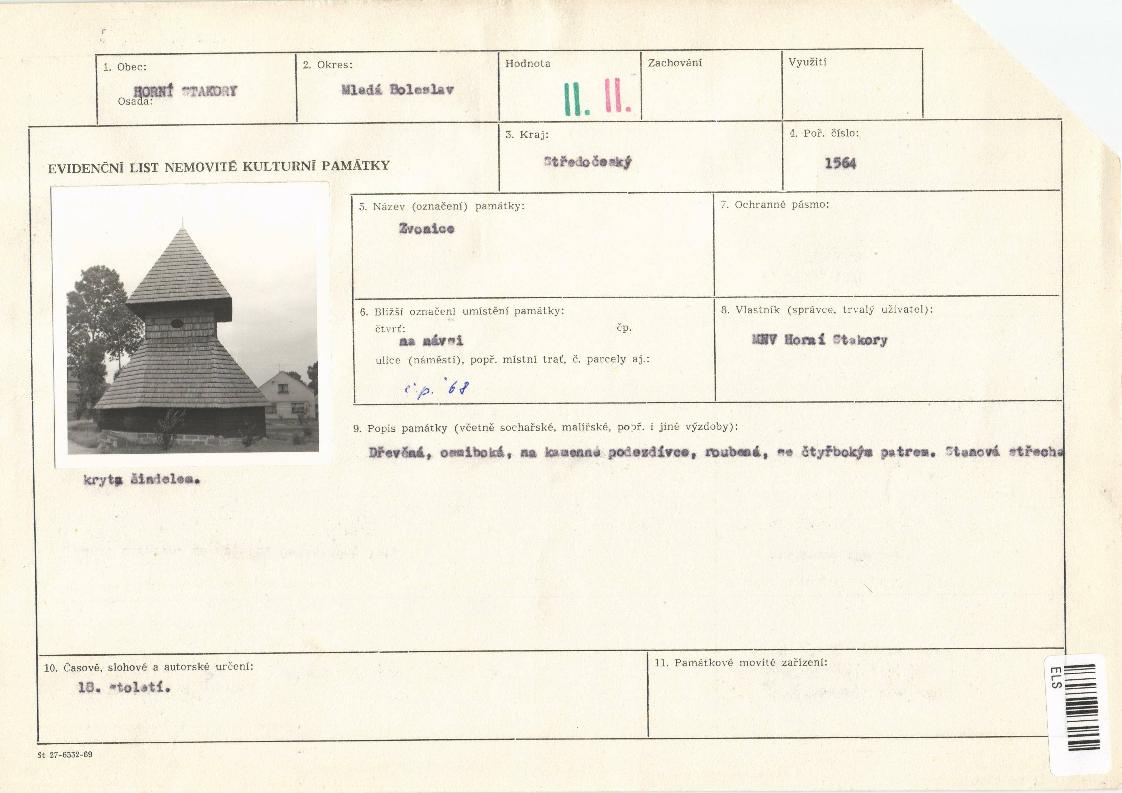 1. Obec:
HORNÍ STAKORY
Osada:
2. Okres:
Mladá Boleslav
Hodnota
II. II.
Zachování
Využití
3. Kraj:
Středočeský
4. Poř. číslo:
1564
EVIDENČNÍ LIST NEMOVITÉ KULTURNÍ PAMÁTKY
5. Název (označení) památky:
Zvonice
7. Ochranné pásmo:
6. Bližší označení umístění památky:
čtvrť: čp.
na návsi
ulice (náměstí), popř. místní trať, č. parcely aj.:
č.p. 68
8. Vlastník (správce, trvalý uživatel):
MNV Horní Stakory
9. Popis památky (včetně sochařské, malířské, popř. i jiné výzdoby):
Dřevěná, osmiboká, na kamenné podezdívce, roubená, se čtyřbokým patrem. Stanová střecha
kryta šindelem.
10. Časové, slohové a autorské určení:
18. století.
11. Památkově movité zařízení:
St 27-6532-69
ELS